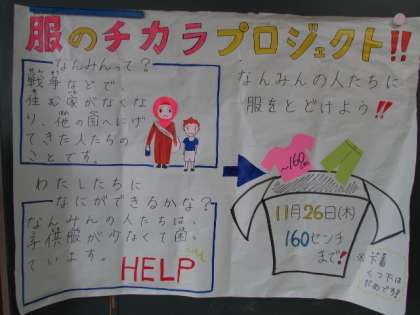 服のチカラプロジェクト!!
なんみんって？
戦争などで
住む家がなくな
り、他の国へにげ
てきた人たちの
ことです。
なんみんの人たちに
服をとどけよう!!
わたしたちに
なにができるかな？
なんみんの人たちは、
子供服が少なくて困っ
ています。
HELP
~160cm
11月26日(木)
160センチ
まで!
※下着
くつ下は
だめです